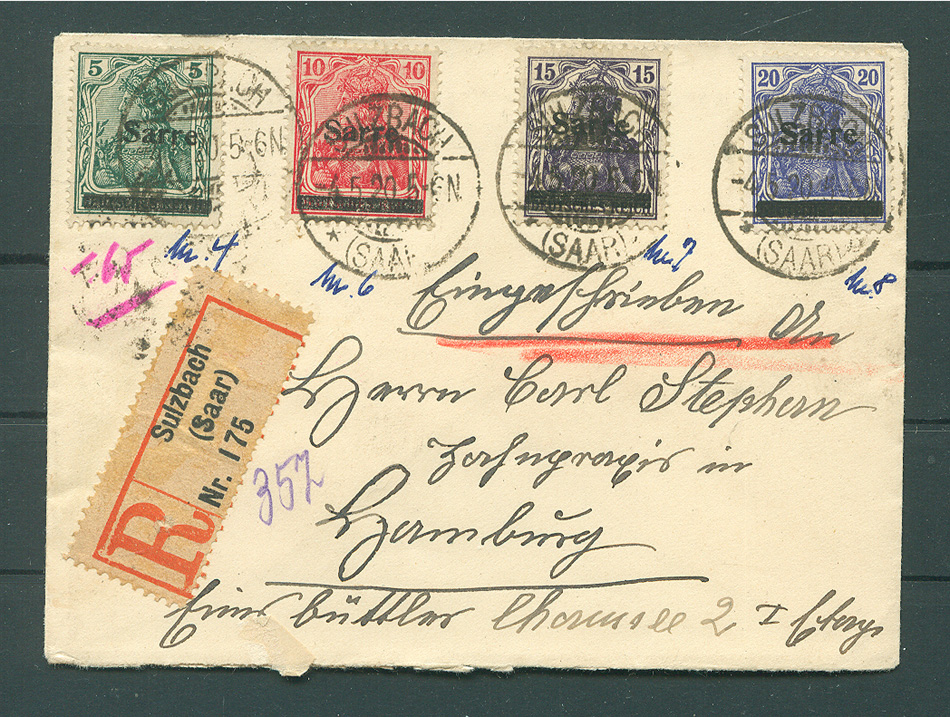 5 5 10 10 15 15 20 20
Sarre Sarre Sarre Sarre
SULZBACH
4.5.20.5-6N
(SAAR)
-65
Nr. 4
Nr. 6
Nr. 7
Nr. 8
Eingeschrieben An
Herrn Carl Stephan
Zahnpraxis in
Hamburg
Eimsbüttler Chaussee 2 I Etage
Sulzbach
(Saar)
Nr. 175
R
357